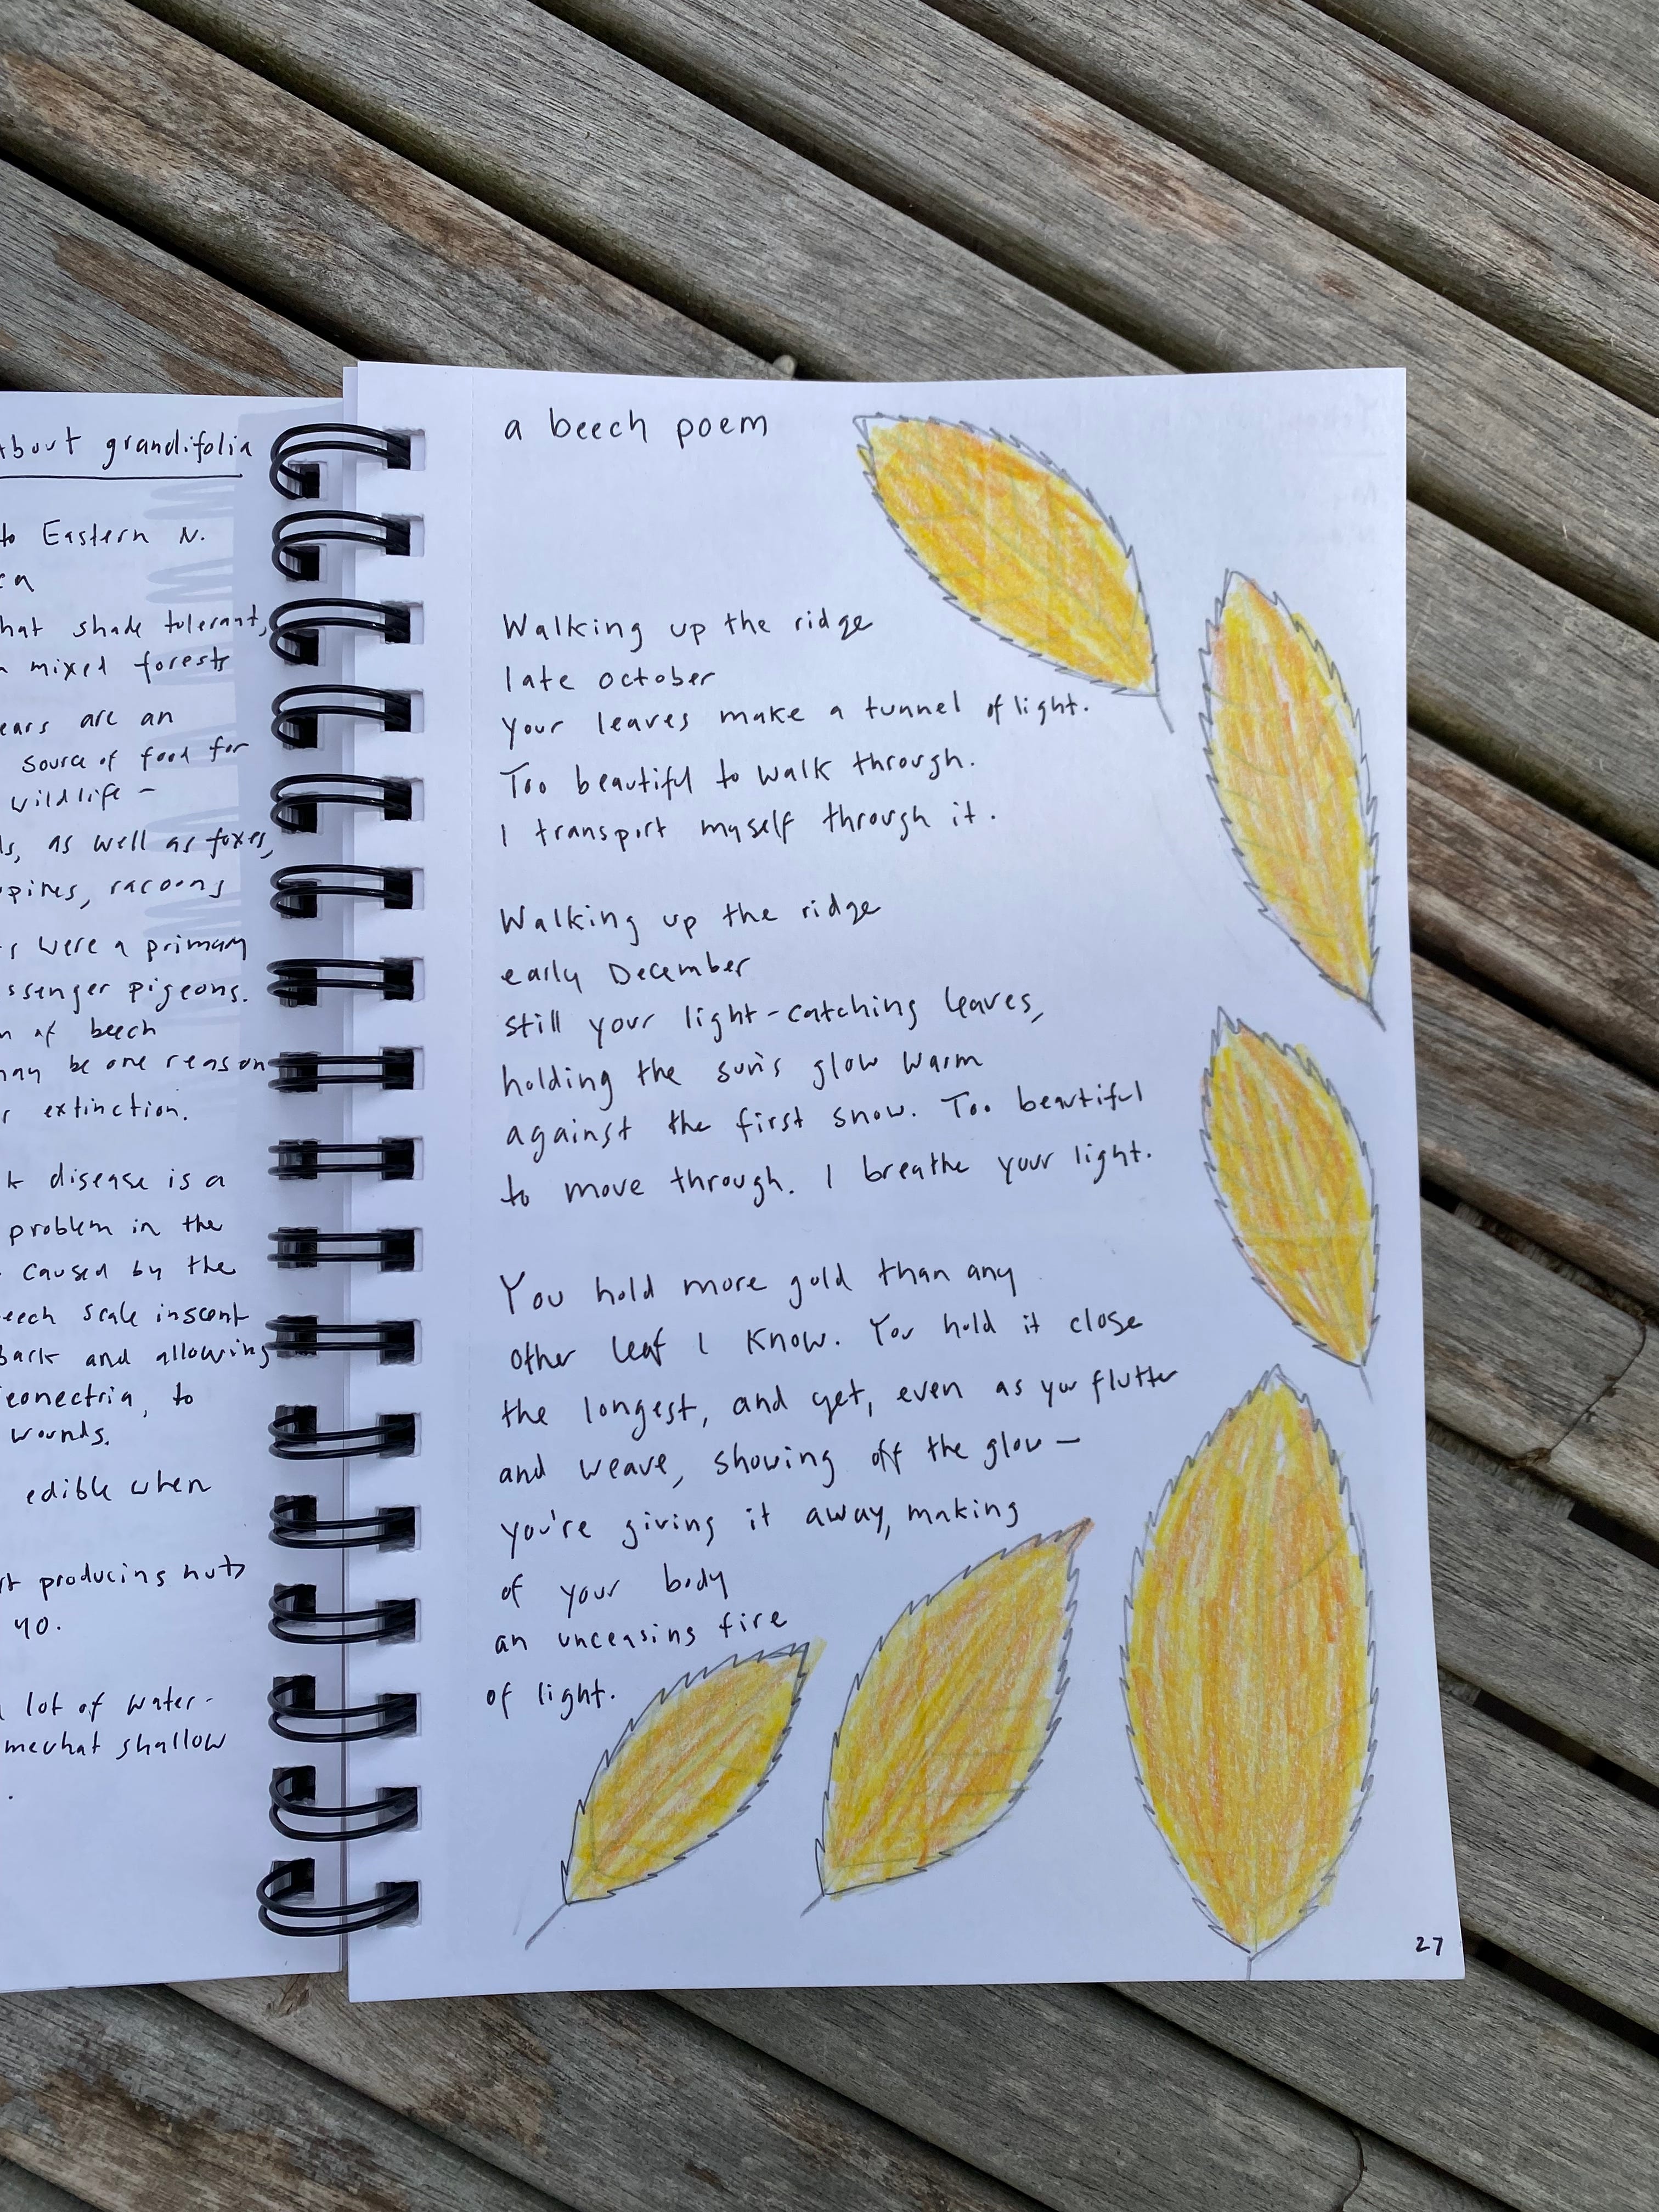 about grandifolia
to Eastern N.
ca
hat shade tolerant,
mixed forests
ears are an
source of food for
wildlife -
ds, as well as foxes,
pines, racoons
were a primary
ssenger pigeons.
of beech
may be one reason
r extinction.
k disease is a
problem in the
caused by the
eech scale inscent
bark and allowing
eonectria, to
wounds.
edible when
rt producing nuts
40.
lot of water-
mewhat shallow
a beech poem
Walking up the ridge
late october
your leaves make a tunnel of light.
Too beautiful to walk through.
I transport myself through it.
Walking up the ridge
early December
still your light-catching leaves,
holding the sun's glow warm
against the first snow. Too beautiful
to move through. I breathe your light.
You hold more gold than any
other leaf I know. You hold it close
the longest, and yet, even as you flutter
and weave, showing off the glow —
you're giving it away, making
of your body
an unceasing fire
of light.
27